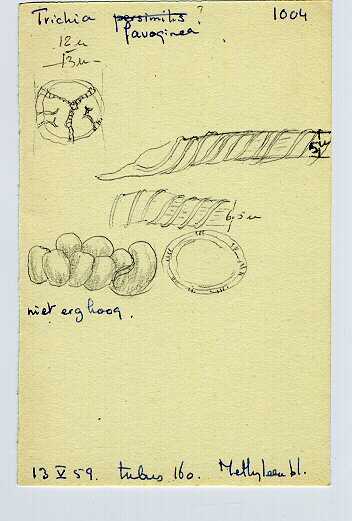 Trichia persimilis ? 1004
favoginea
12 µ
13 µ
5 µ
6,5 µ
niet erg hoog.
13 V 59. tubus 160. Methyleenbl.